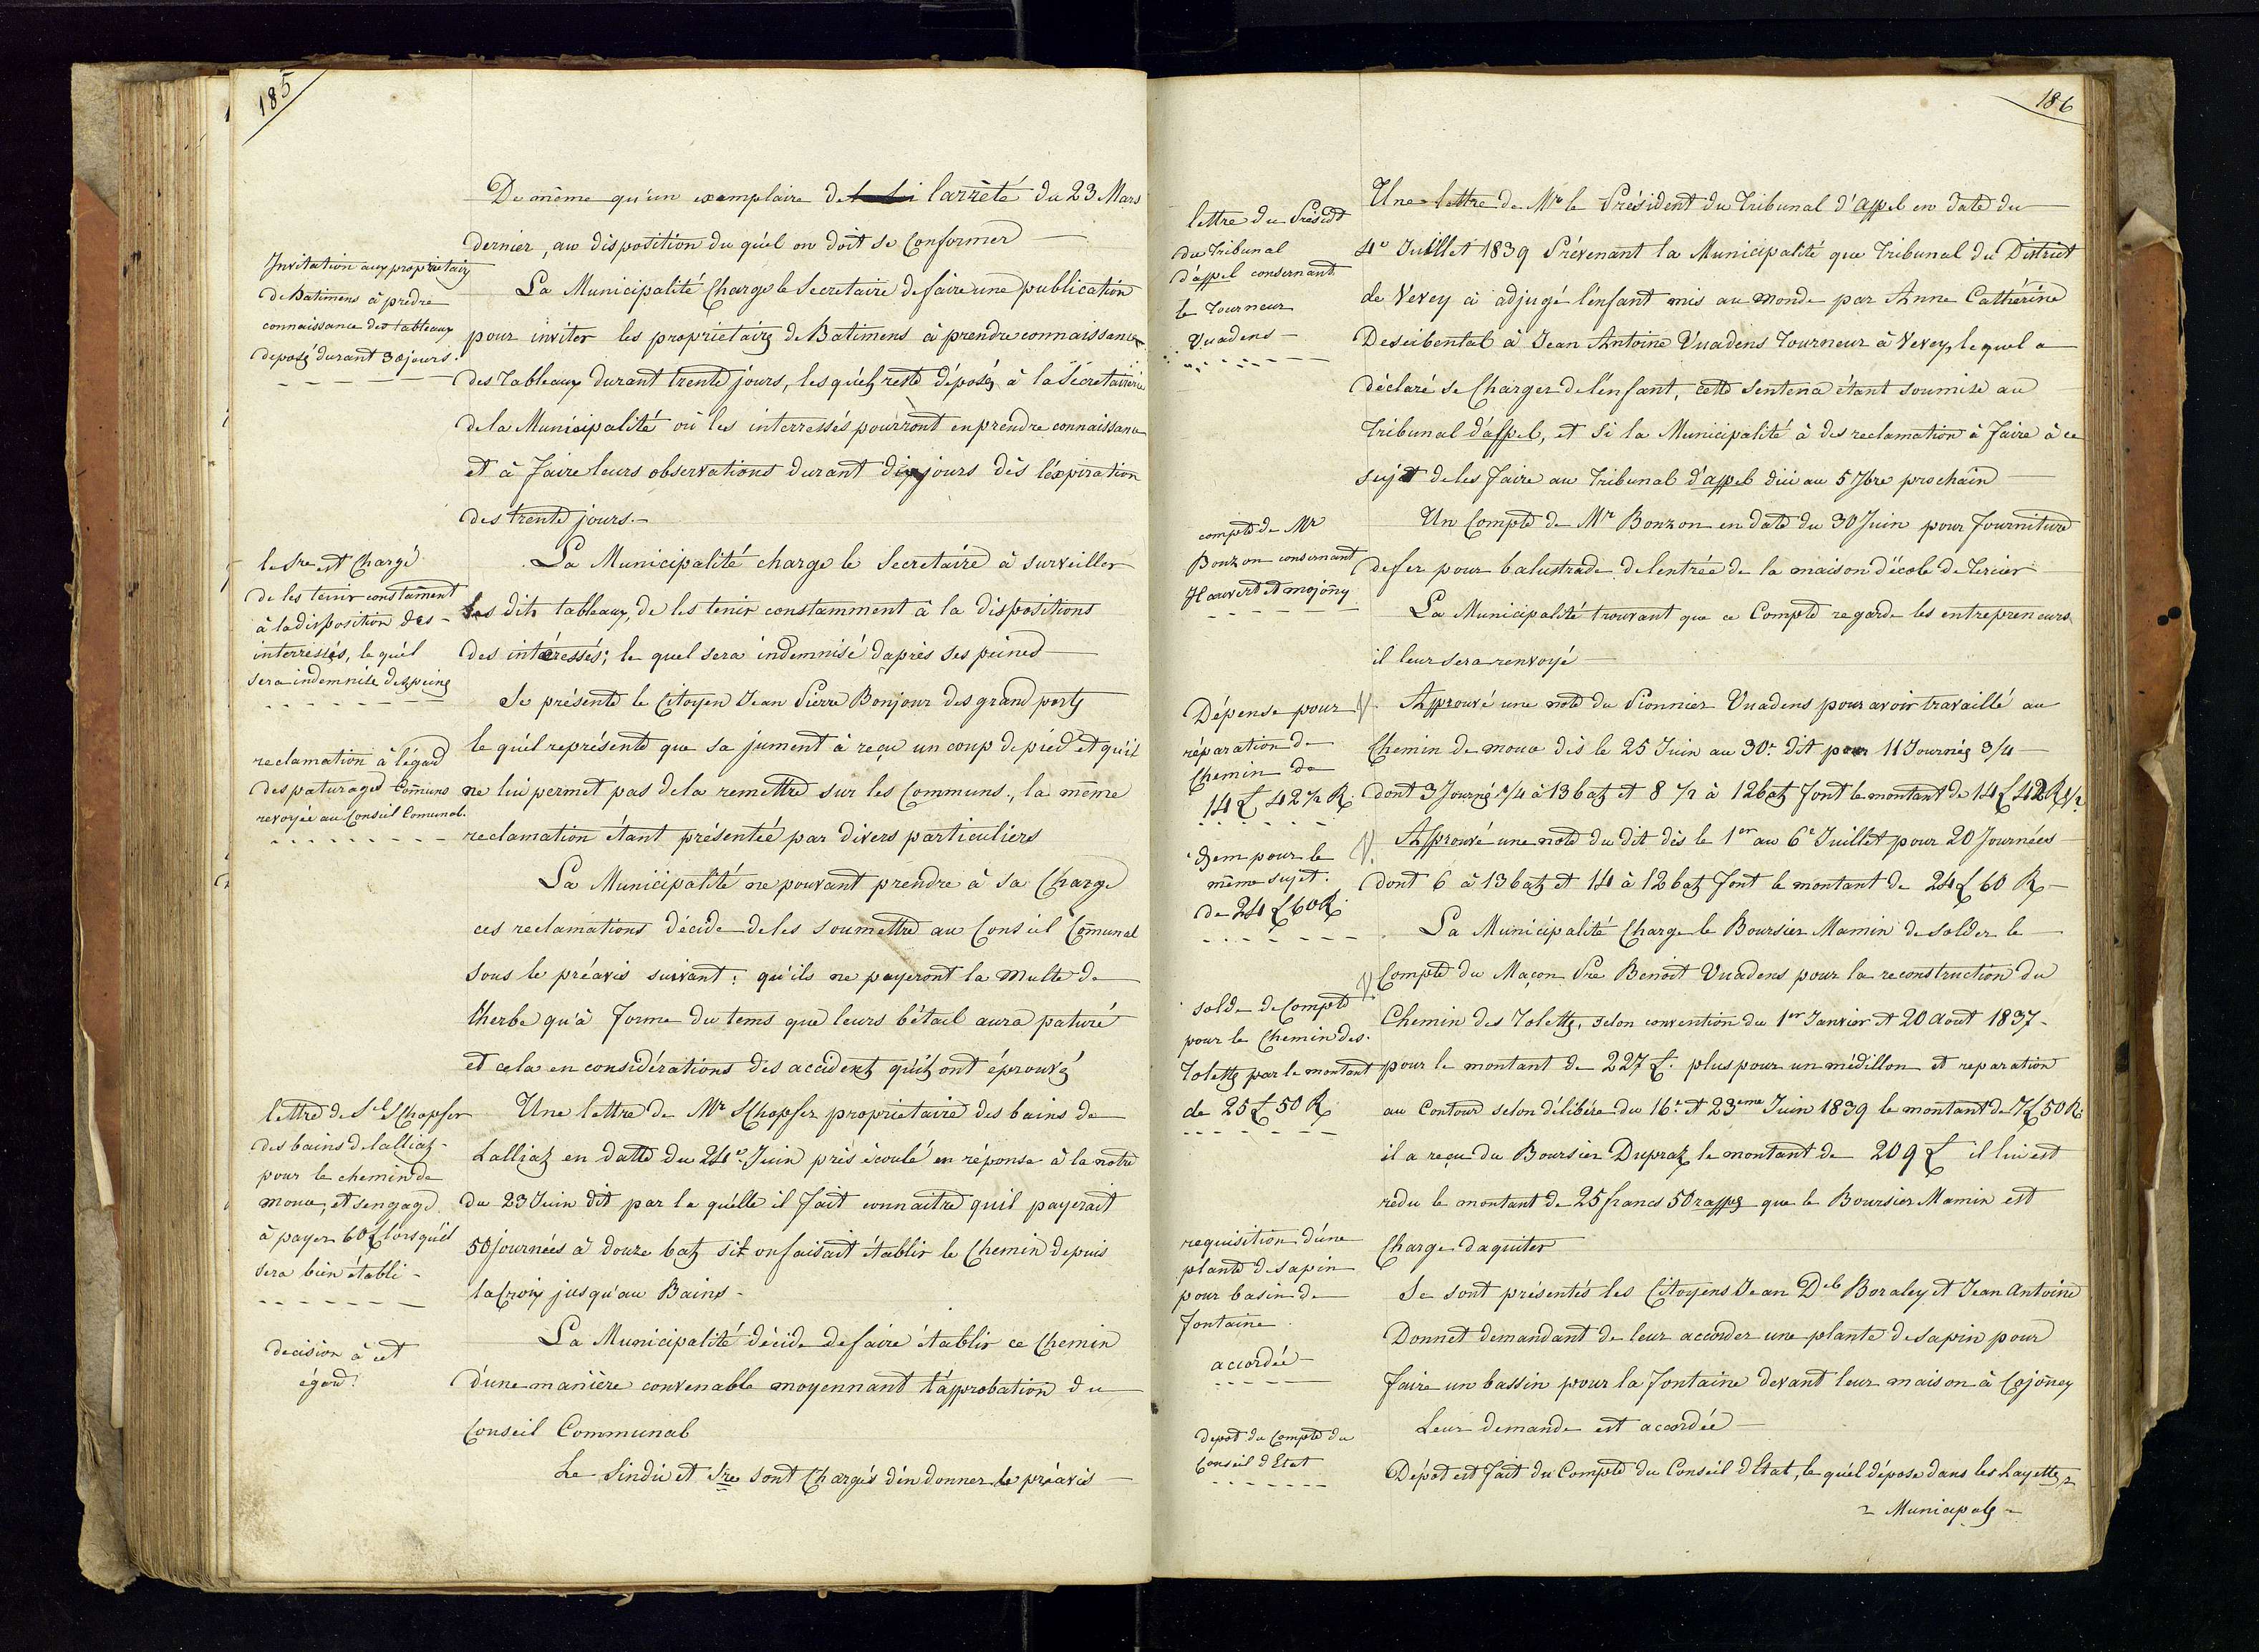 185
De même qu'un exemplaire de larrêté du 23 Mars
dernier, au disposition du quél on doit se Conformer
Invitation aux proprietairs
de Batimens à predre
connaissance des tableaux
deposés durant 30 jours.
La Municipalité Charge le Secretaire de faire une publication
pour inviter les proprietairs de Batimens à prendre connaissance
des Tableaux durant trente jours, les quéls reste déposés à la Secretairerie
de la Municipalité où les interressés pourront en prendre connaissance
et à faire leurs observations durant dix jours dès léxpiration
des trente jours.
le Sre est Chargé
de les tenir constament
à la disposition des
interressés, le quél
sera indemnisé des peins
La Municipalité charge le Secretaire à surveiller
les dits tableaux, de les tenir constamment à la dispositions
des intéressés; le quel sera indemnisé daprès ses peines
Se présente le Citoyen Jean Pierre Bonjour des grand ports
reclamation à légard
des paturages Comuns
revoyée au Conseil Comunal.
le quél représente que sa jument à reçu un coup de pied et qu'il
ne lui permet pas de la remettre sur les Communs, la même
reclamation étant présentée par divers particuliers
La Municipalité ne pouvant prendre à sa Charge
ces reclamations décide de les soumettre au Conseil Comunal
sous le préavis suivant: qu'ils ne payeront la multe de
lherbe qu'à forme du tems que leurs bétail aura paturé
et cela en considérations des accidents qu'ils ont éprouvés
lettre de Sel SChopfer
des bains de lalliaz
pour le chemin de
moua, et sengage
à payer 60 £ lorsqu'il
sera bien établi
Une lettre de Mr SChopfer proprietaire des bains de
Lalliaz en datte du 24e Juin près écoulé en réponse à la notre
du 23 Juin dit par la quélle il fait connaitre quil payerait
50 journées à douze batz si on faisait établir le Chemin depuis
la Croix jusqu'au Bains
decision à cet
égard.
La Municipalité décide de faire établir ce Chemin
d'une manière convenable moyennant l'approbation du
Conseil Communal
Le Sindic et Sre sont Chargés d'en donner le préavis
186
lettre du Présidt
du Tribunal
d'appel consernant
le Tourneur
Vuadens
Une lettre de Mr le Président du Tribunal d'appel en date du
4e Juillet 1839 Prévenant la Municipalité que Tribunal du District
de Vevey à adjugé lénfant mis au monde par Anne Cathérine
Deseibental à Jean Antoine Vuadens Tourneur à Vevey, le quel a
déclaré se Charger de lénfant, cette sentence étant soumise au
Tribunal d'appel, et si la Municipalité à des reclamation à faire à ce
sujet de les faire au Tribunal d'appel dici au 5 7bre prochain
compte de Mr
Bonzon consernant
Hauvert et mojony
Un Compte de Mr Bonzon en date du 30 Juin pour fourniture
de fer pour balustrade de lentrée de la maison d'école de Tercier
La Municipalité trouvant que ce Compte regarde les entrepreneurs
il leur sera renvoyé
Dépense pour
réparation de
Chemin de
14 £ 42 ½ R.
Approuvé une note du Pionnier Vuadens pour avoir travaillé au
Chemin de moua dès le 25 Juin au 30e dit pour 11 Journés 3/4
dont 3 Journés 1/4 à 13 batz et 8 ½ à 12 batz font le montant de 14 £ 42 R ½
Idem pour le
même sujet.
de 24 £ 60 R.
Approuvé une note du dit dès le 1er au 6e Juillet pour 20 Journées
dont 6 à 13 batz et 14 à 12 batz font le montant de 24 £ 60 R
La Municipalité Charge le Boursier Mamin de solder le
solde de Compte
pour le Chemin des
Toletts par le montant
de 25 £ 50 R
Compte du Maçon Pre Benoit Vuadens pour la reconstruction du
Chemin des Toletts, selon convention du 1er Janvier et 20 Aout 1837
pour le montant de 227 £. plus pour un médillon et reparation
au Contour selon délibéré du 16e et 23eme Juin 1839 le montant de 7 £ 50 R.
il a reçu du Boursier Dupraz le montant de 209 £ il lui est
redu le montant de 25 francs 50 rapps que le Boursier Mamin est
Charge daquiter
requisition d'une
plante de sapin
pour basin de
fontaine
accordée
Se sont présentés les Citoyens Jean Del Boraley et Jean Antoine
Donnet demandant de leur accorder une plante de sapin pour
faire un bassin pour la fontaine devant leur maison à Cojoney
Leur demande est accordée
depot du Compte du
Conseil d'Etat
Dépot est fait du Compte du Conseil d'Etat, le quél dépose dans les Layettes
Municipals